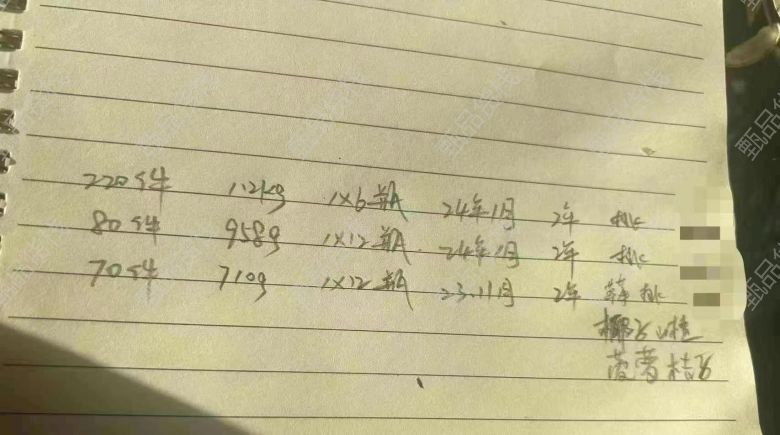 220件 1.2kg 1×6瓶 24年1月 2年 桃
80件 958g 1×12瓶 24年1月 2年 桃
70件 710g 1×12瓶 23.11月 2年 桃
椰子
菠萝桔子
甄品线栈